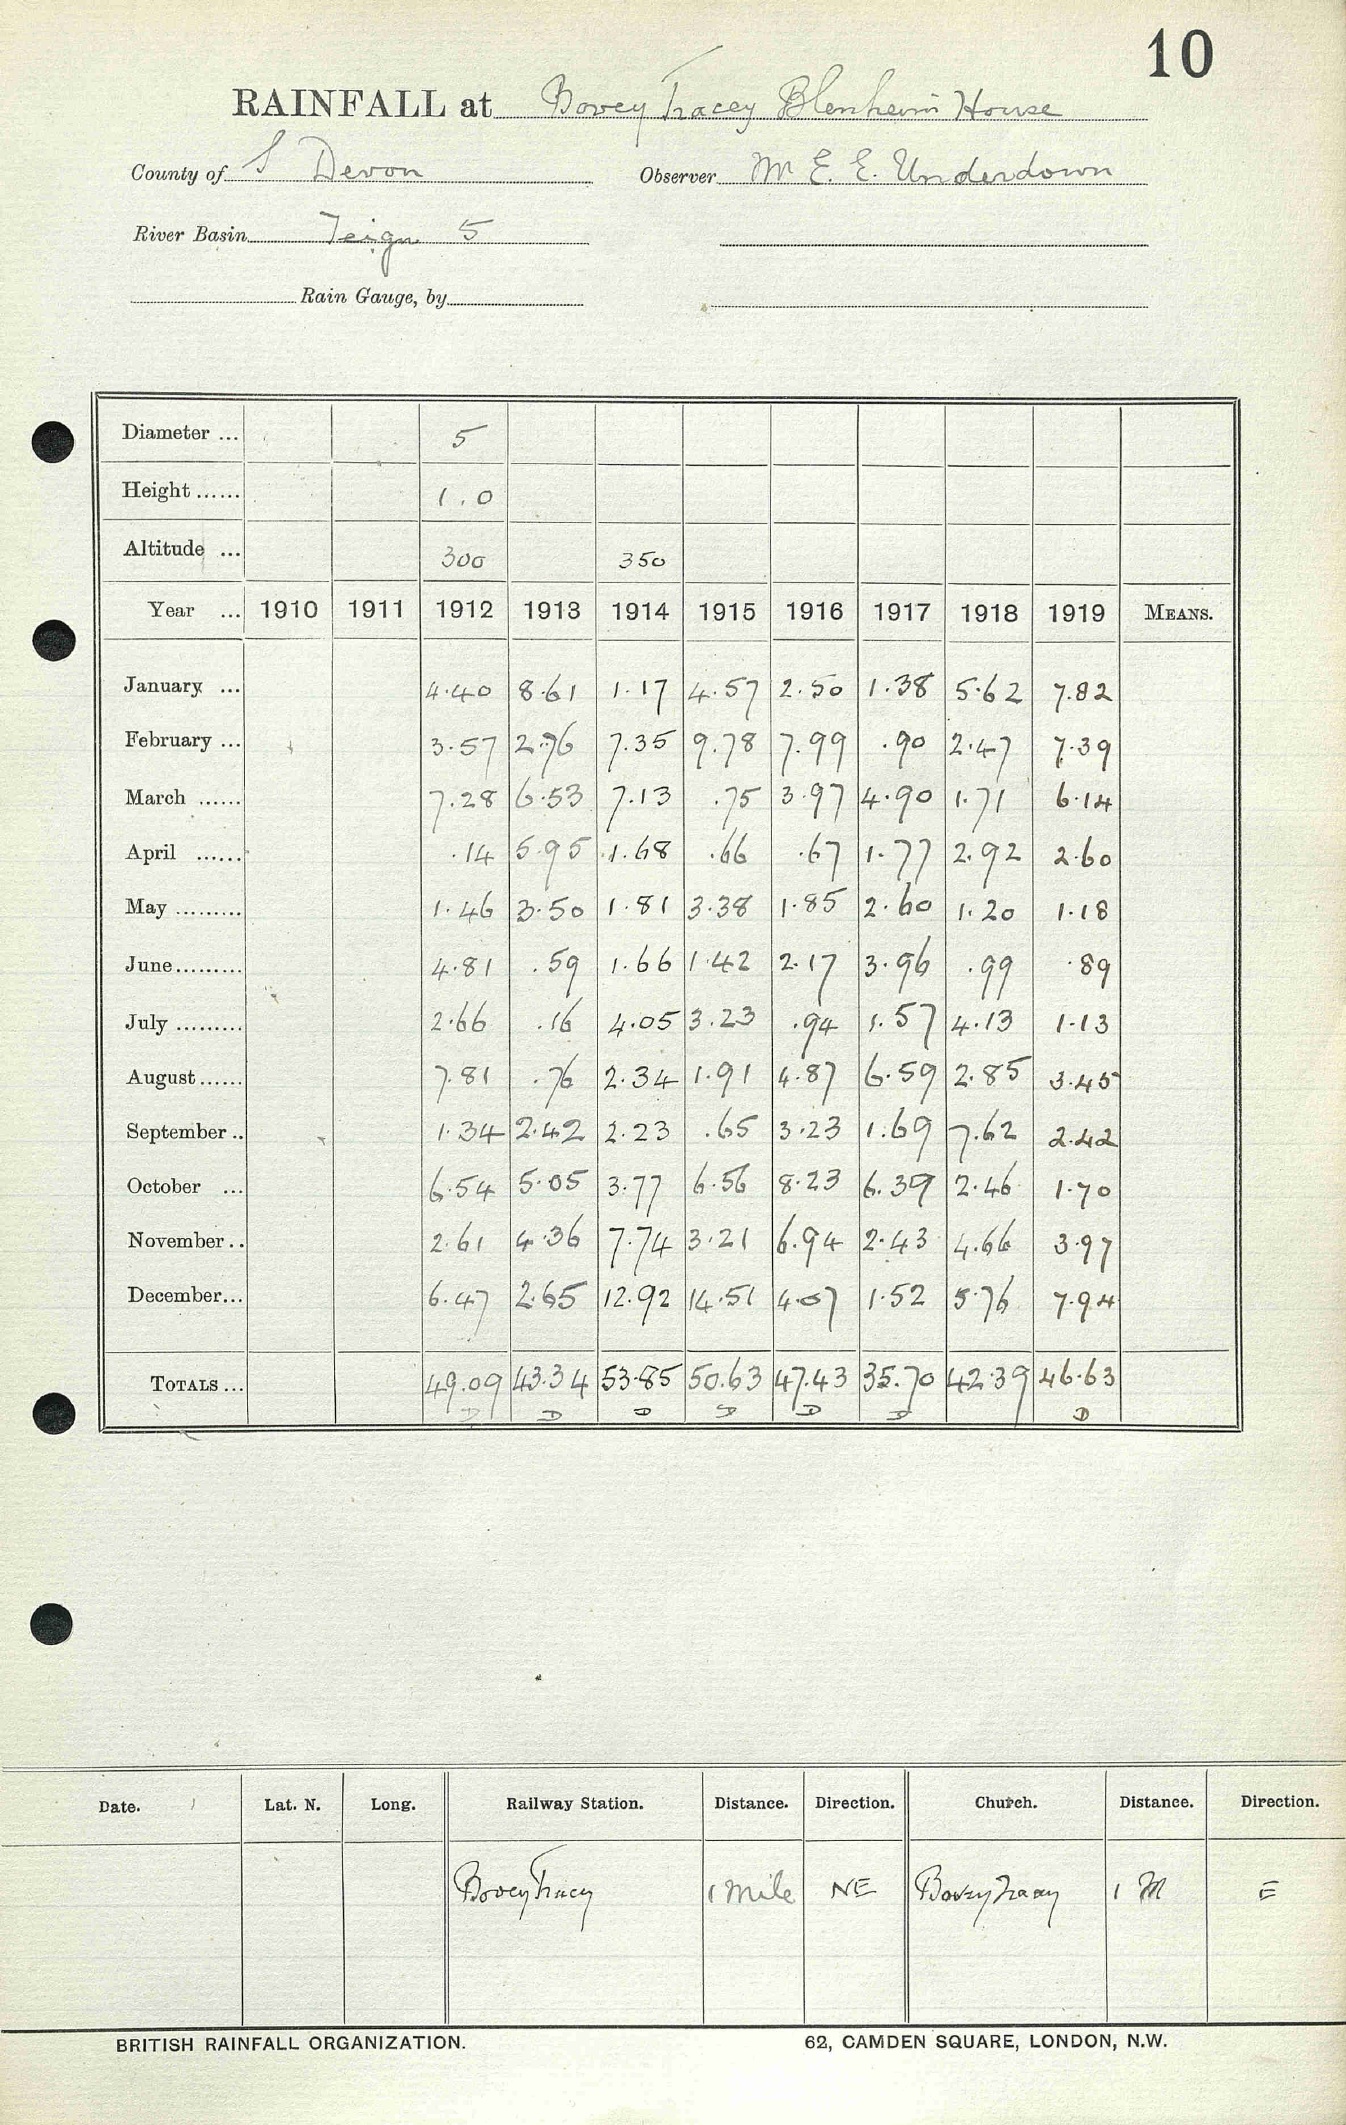 10
RAINFALL at Bovey Tracey Blenheim House
County of S Devon Observer Mr E. E. Underdown
River Basin Teign 5
Rain Gauge, by
Diameter ... 5
Height ...... 1.0
Altitude ... 300 350
Year ... 1910 1911 1912 1913 1914 1915 1916 1917 1918 1919 MEANS.
January ... 4.40 8.61 1.17 4.57 2.50 1.38 5.62 7.82
February ... 3.57 2.76 7.35 9.78 7.99 .90 2.47 7.39
March ...... 7.28 6.53 7.13 .75 3.97 4.90 1.71 6.14
April ...... .14 5.95 1.68 .66 .67 1.77 2.92 2.60
May ......... 1.46 3.50 1.81 3.38 1.85 2.60 1.20 1.18
June ......... 4.81 .59 1.66 1.42 2.17 3.96 .99 .89
July ......... 2.66 .16 4.05 3.23 .94 1.57 4.13 1.13
August ...... 7.81 .76 2.34 1.91 4.87 6.59 2.85 3.45
September .. 1.34 2.42 2.23 .65 3.23 1.69 7.62 2.42
October ... 6.54 5.05 3.77 6.56 8.23 6.39 2.46 1.70
November .. 2.61 4.36 7.74 3.21 6.94 2.43 4.66 3.97
December ... 6.47 2.65 12.92 14.51 4.07 1.52 5.76 7.94
TOTALS ... 49.09 43.34 53.85 50.63 47.43 35.70 42.39 46.63
D D D D D D D
Date. Lat. N. Long. Railway Station. Distance. Direction. Church. Distance. Direction.
Bovey Tracy 1 Mile NE Bovey Tracy 1 M E
BRITISH RAINFALL ORGANIZATION. 62, CAMDEN SQUARE, LONDON, N.W.